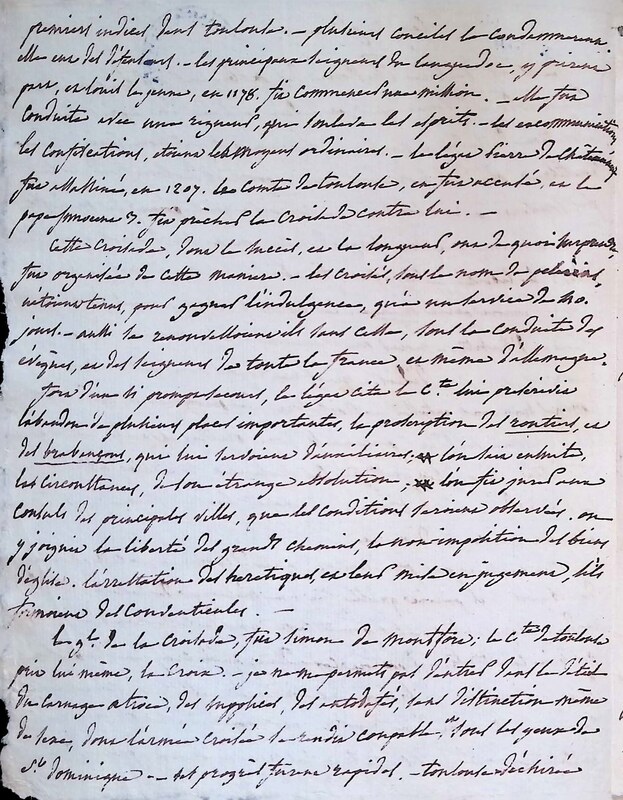 premiers indices dans toulouse. — plusieurs conciles la condamnerent.
elle eut des détenteurs. — les principaux seigneurs du languedoc, y prirent
part, et louis le jeune, en 1178. fit commencer une mission. — elle fut
conduite avec une rigueur, qui souleva les esprits. — les excommunications,
les confiscations, etoient les moyens ordinaires. — le légat Pierre de Châteauneuf
fut assassiné, en 1207. le Comte de toulouse, en fut accusé, et le
pape Innocent 3. fit prêcher la Croisade contre lui. —
Cette Croisade, dont le succès, et la longueur, ont de quoi surprendre,
fut organisée de cette maniere. — les croisés, sous le nom de pelerins,
n'étoient tenus, pour gagner l'indulgence, qu'à un service de 40.
jours. — aussi se renouvelloient ils sans cesse, sous la conduite des
évêques, et des seigneurs de toute la france et même d'allemagne.
fort d'un si prompt secours, le légat cite le C.te lui prescrivit
l'abandon de plusieurs places importantes, la proscription des routiers, et
des brabançons, qui lui servoient d'auxiliaires. l'on sait ensuite,
les circonstances, de son étrange absolution, l'on fit jurer aux
consuls des principales villes, que les conditions seroient observées. on
y joignit la liberté des grands chemins, la non imposition des biens
d'église. l'arrestation des heretiques, et leur mise en jugement, s'ils
formoient des conventicules. —
le g.l de la Croisade, fut simon de montfort; le C.te de toulouse
prit lui même, la Croix. — je ne me permets pas d'entrer dans le détail
du carnage atroce, des supplices, des autodafés, sans distinction même
de sexe, dont l'armée croisée se rendit coupable, sous les yeux de
S.t dominique — ses progrès furent rapides. — toulouse déchirée